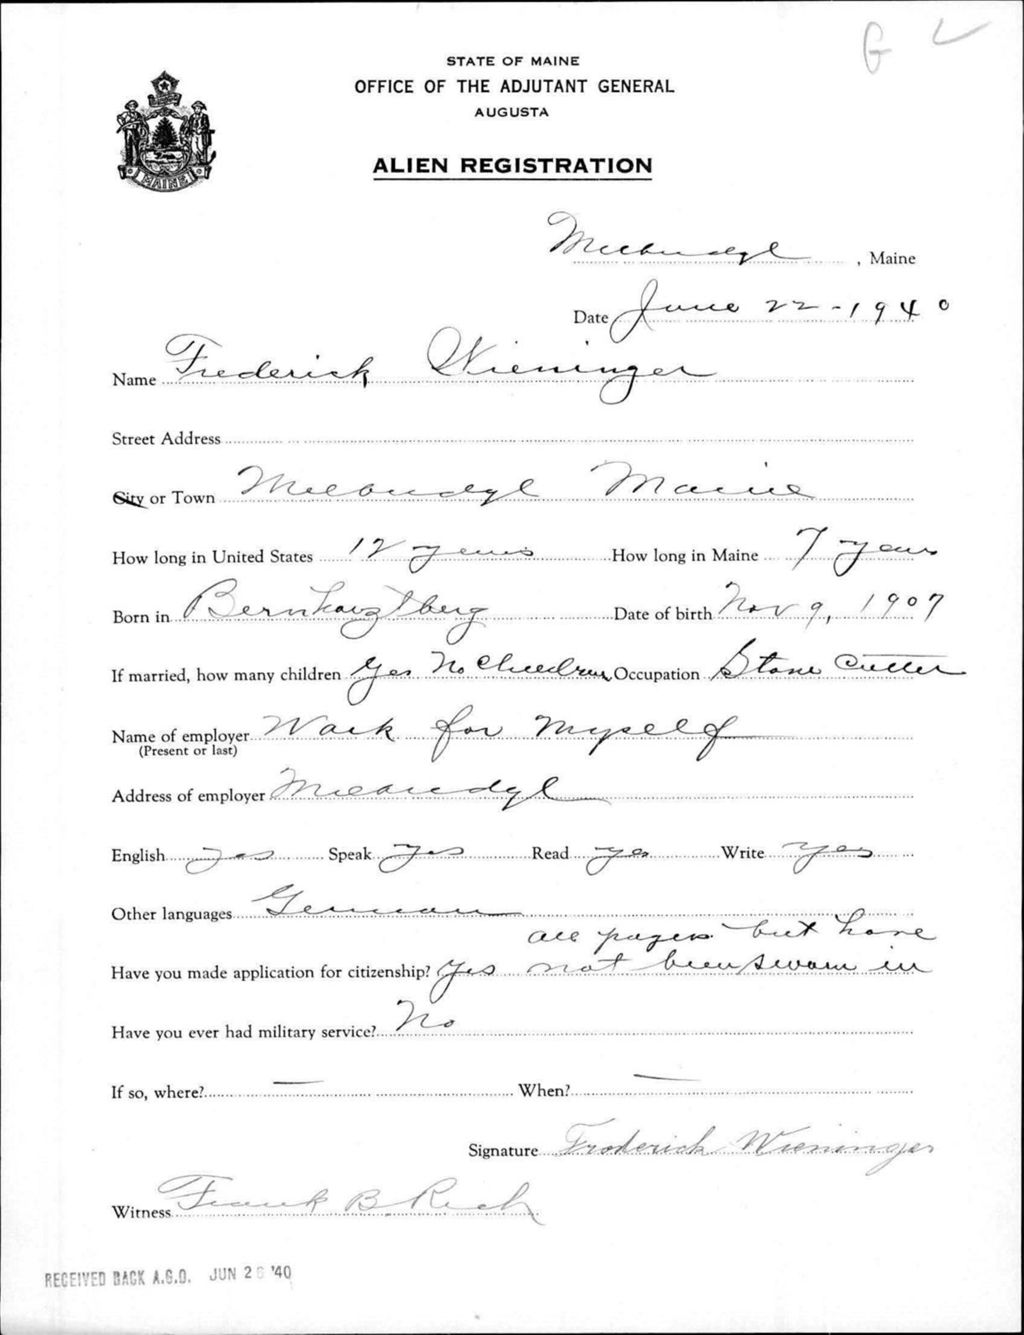 G
STATE OF MAINE
OFFICE OF THE ADJUTANT GENERAL
AUGUSTA
MAINE
ALIEN REGISTRATION
Milbridge, Maine
Date June 22-1940
Name Frederick Wieninger
Street Address
City or Town Milbridge Maine
How long in United States 12 years How long in Maine 7 years
Born in Date of birth Nov 9, 1907
If married, how many children Yes No Children Occupation Stone Cutter
Name of employer Work for Myself
(Present or last)
Address of employer Milbridge
English yes Speak yes Read yes Write yes
Other languages German
all pagers but have
Have you made application for citizenship? Yes not been sworn in
Have you ever had military service? No
If so, where? — When? —
Signature Frederick Wieninger
Witness Frank B. Rich
RECEIVED BACK A.G.O. JUN 26 '40